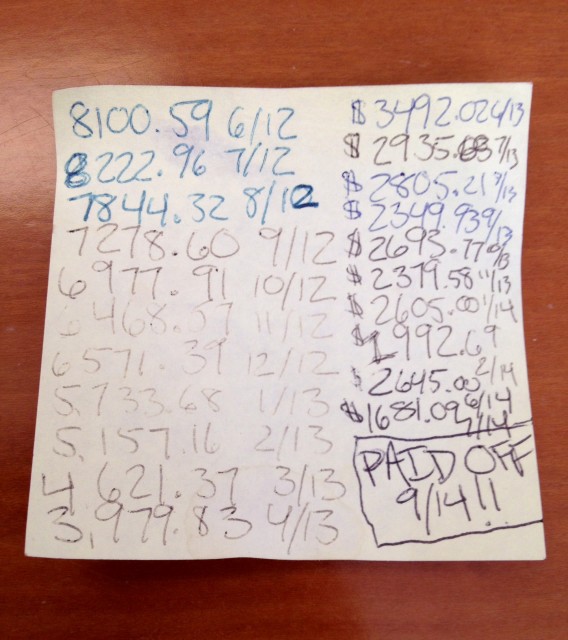 8100.59 6/12
8222.96 7/12
7844.32 8/12
7278.60 9/12
6977.91 10/12
6468.57 11/12
6571.39 12/12
5,733.68 1/13
5,157.16 2/13
4,621.37 3/13
3,979.83 4/13
$3492.02
$2935.
$2805.21
$2349.93 9/13
$2693.77
$2379.58 11/13
$2605.00 1/14
$1992.69
2/14
$2645.00 6/14
$1681.09 7/14
PAID OFF
9/14!!